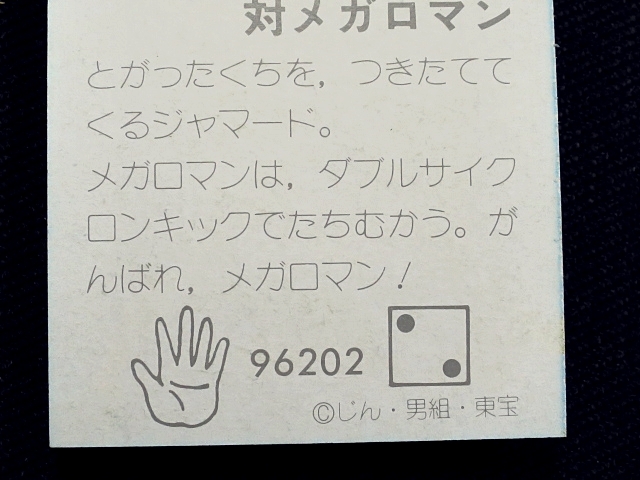 対メガロマン
とがったくちを，つきたてて
くるジャマード。
メガロマンは，ダブルサイク
ロンキックでたちむかう。が
んばれ，メガロマン！
96202
©じん・男組・東宝